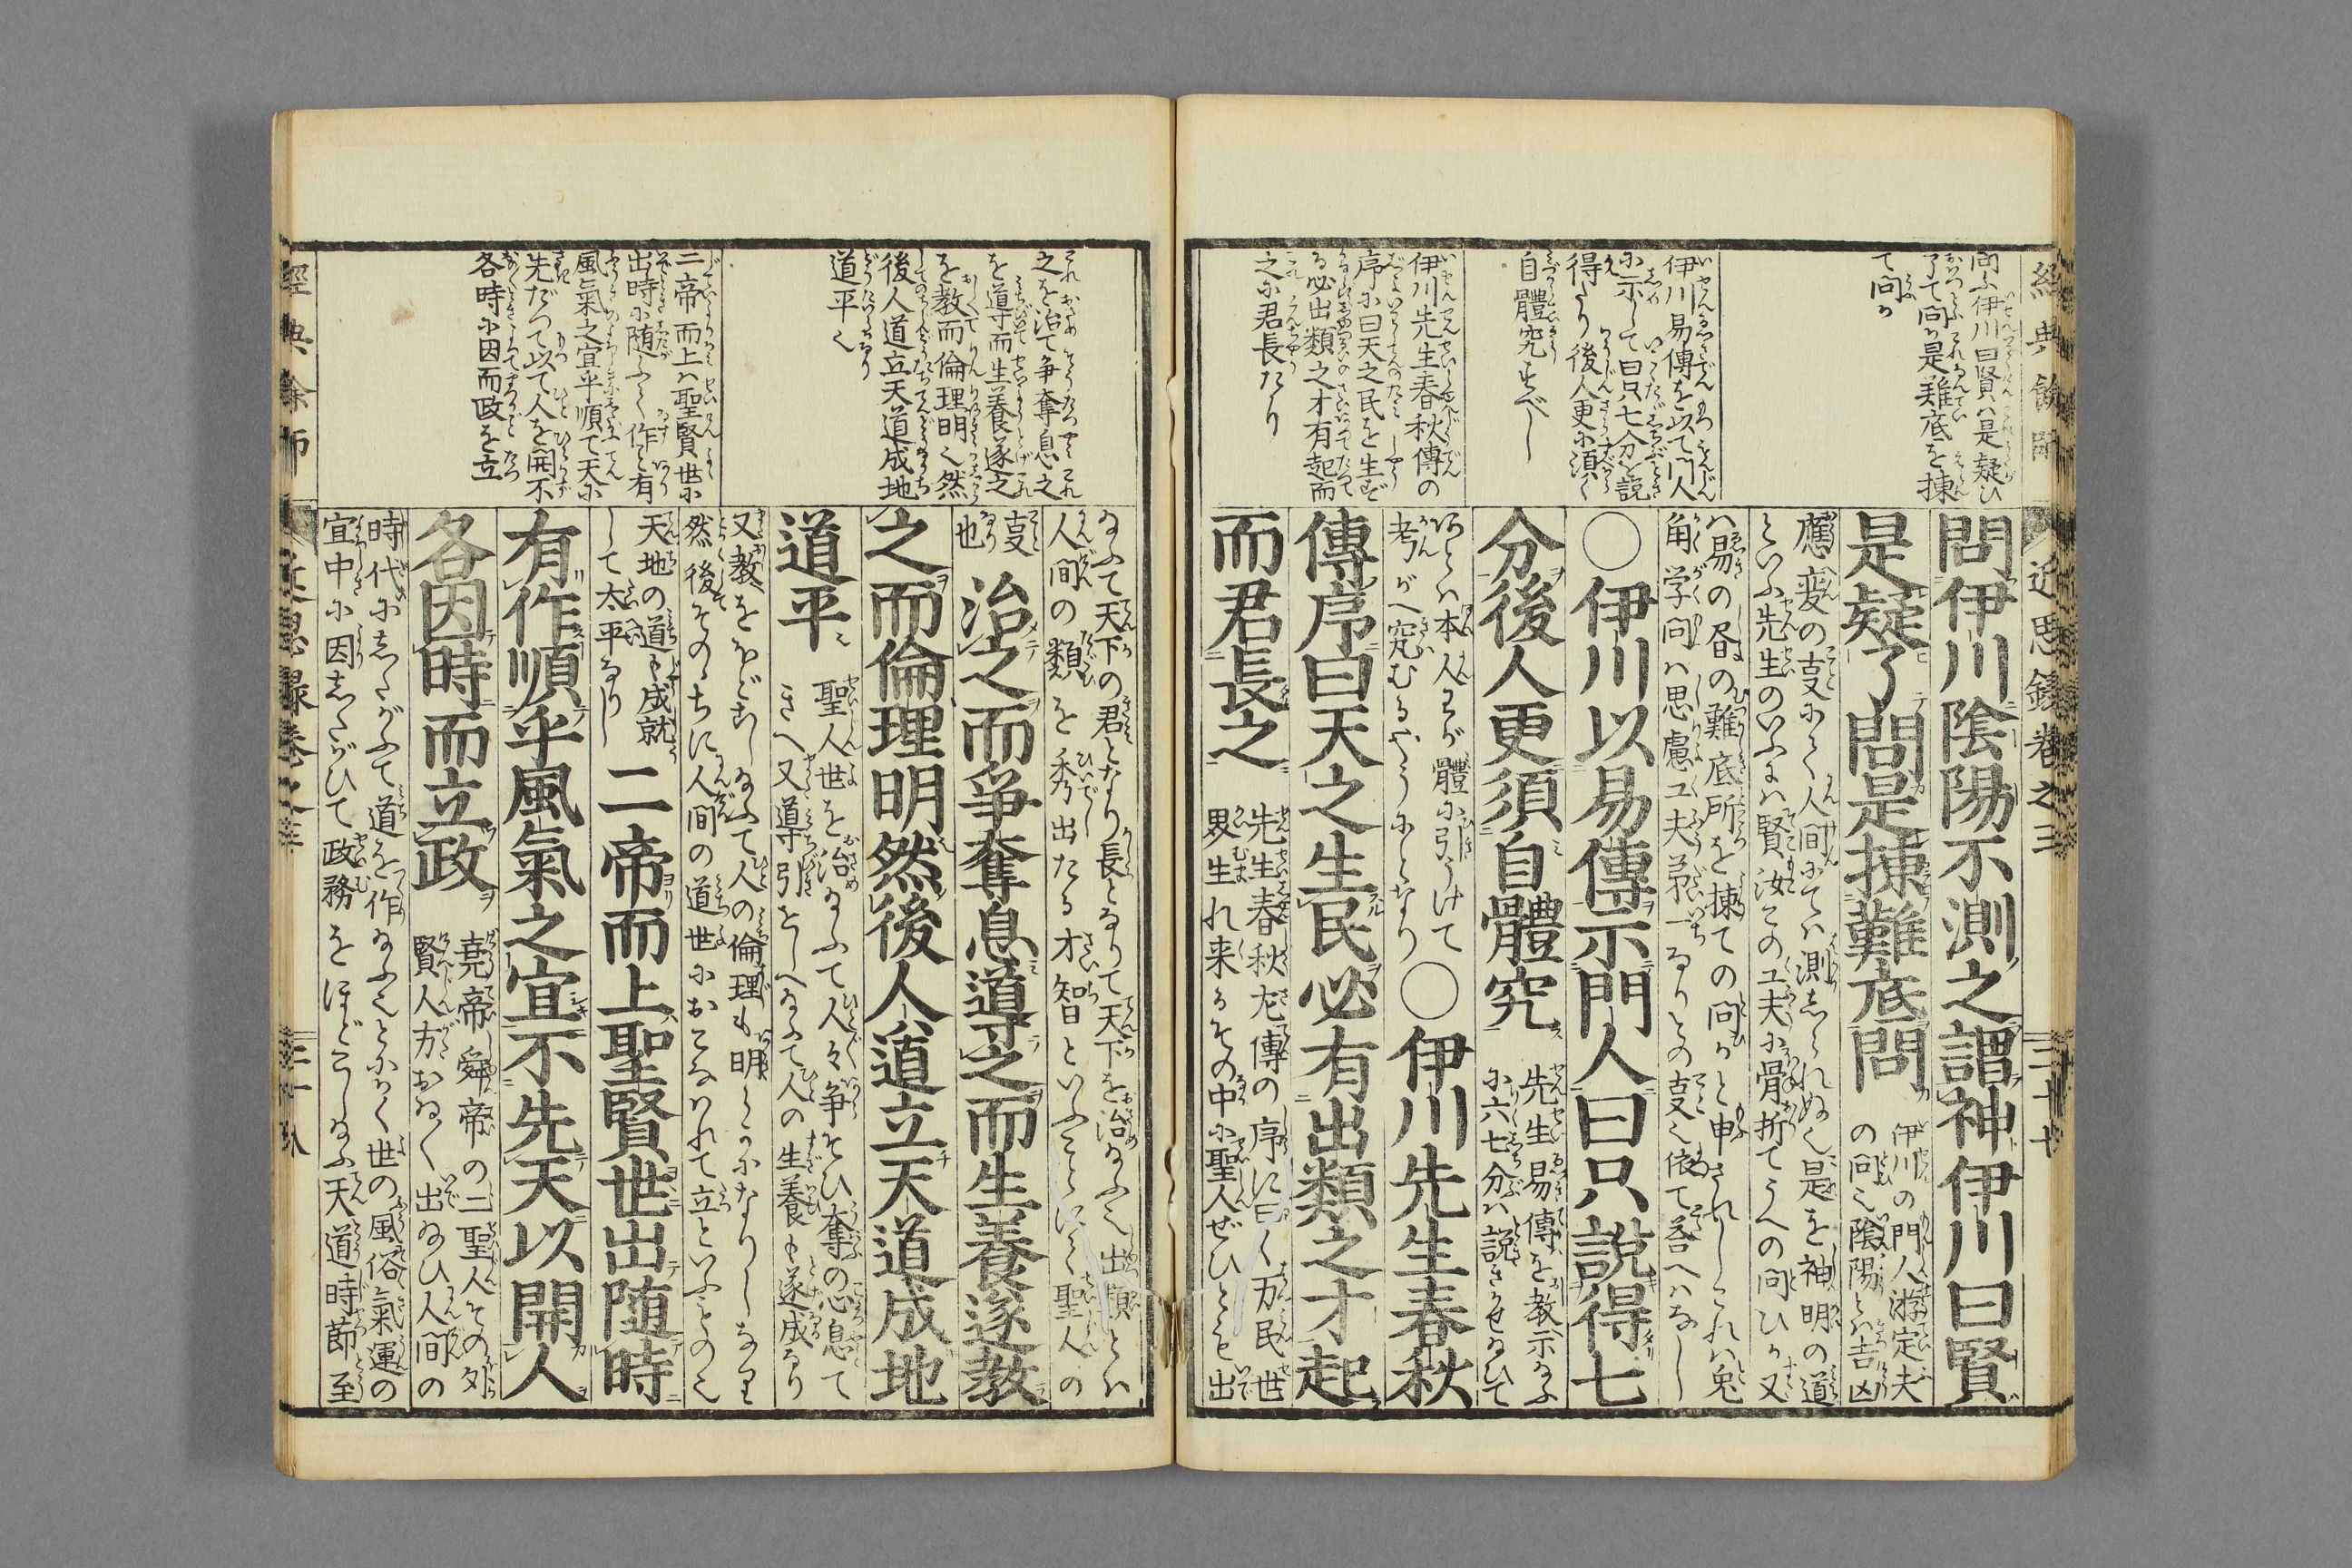 經典餘師
近思録巻之三
三十七
問ふ伊川曰賢ハ是疑ひ
了て問か是難底を揀
て問か
伊川易傳を以て門人
に示して曰只七分を説
得たり後人更に須く
自體究すべし
伊川先生春秋傳の
序に曰天之民を生ずる
必出類之才有起而
之に君長たり
問伊川陰陽不測之謂神伊川曰賢
是疑了問是揀難底問
伊川の門人游定夫
の問也陰陽とハ吉凶
應変の㕝にて人間にてハ測しられぬ也是を神明の道
といふ先生のいふハ賢汝この工夫に骨折てうへの問ひか又
ハ易の昏の難底所を揀ての問かと申されしこれハ兎
角学問ハ思慮工夫第一なりとの㕝也依て答へハなし
〇伊川以易傳示門人曰只說得七
分後人更須自體究
先生易傳を教示なふ
に六七分ハ説きかせ給ひて
あとハ本人わが體に引うけて
考がへ究むるやうにとなり
〇伊川先生春秋
傳序曰天之生民必有出類之才起
而君長之
先生春秋左傳の序に曰く万民世
界生れ来るその中に聖人ぜひとも出
之を治て争奪息之
を導而生養遂之
を教而倫理明也然
後人道立天道成地
道平也
二帝而上ハ聖賢世に
出時に随ふ也作こと有
風氣之宜乎順て天に
先だつて以て人を開不
各時に因而政を立
なふて天下の君となり長となりて天下を治なふ也出類とハ
人間の類を秀出たる才智といふことにて聖人の
㕝也
治之而爭奪息導之而生養遂教
之而倫理明然後人道立天道成地
道平
聖人世を治なふて人々争そひ奪の心息て
きへ又導引をしへなふて人の生養も遂成なり
又教をほどこしなふて人の倫理も明らかになりしなり
然後そのゝちに人間の道世におこなハれて立といふもの也
天地の道も成就
して太平なり
二帝而上聖賢世出随時
有作順乎風氣之宜不先天以開人
各因時而立政
堯帝舜帝の二聖人その外
賢人方おほく出給ひ人間の
時代にしたがふて道を作なふことにかく世の風俗氣運の
宜中に因したがひて政務をほどこしなふ天道時節至
經典余師
近思録巻之三
三十八